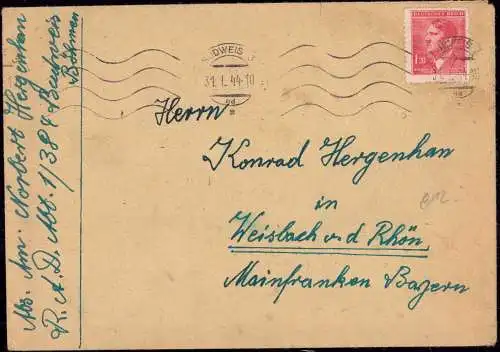 Abs. Am. Norbert Hergenhan
R.A.D. Abt. 1/384 Budweis
Böhmen
UDWEIS
31.1.44-10
DEUTSCHES REICH
1.20
Herrn
Konrad Hergenhan
in
Weisbach v. d Rhön,
Mainfranken Bayern